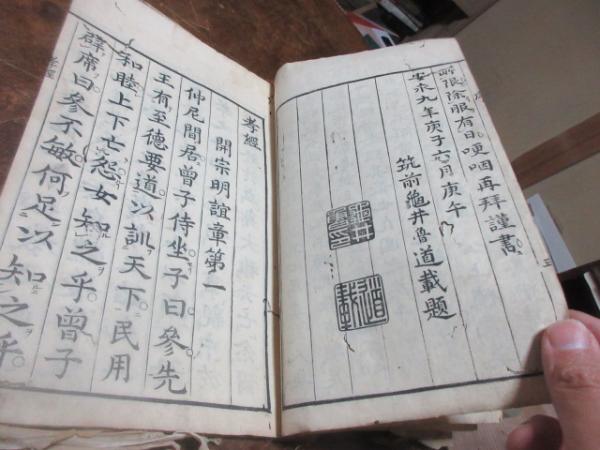 所限除服有日哽咽再拜謹書
安永九年庚子六月庚午
筑前龜井魯道載題
龜井魯印
道載
孝經
開宗明誼章第一
仲尼間居曾子侍坐子曰參先
王有至德要道以訓天下民用
和睦上下亡怨女知之乎曾子
辟席曰參不敏何足以知之乎
孝經